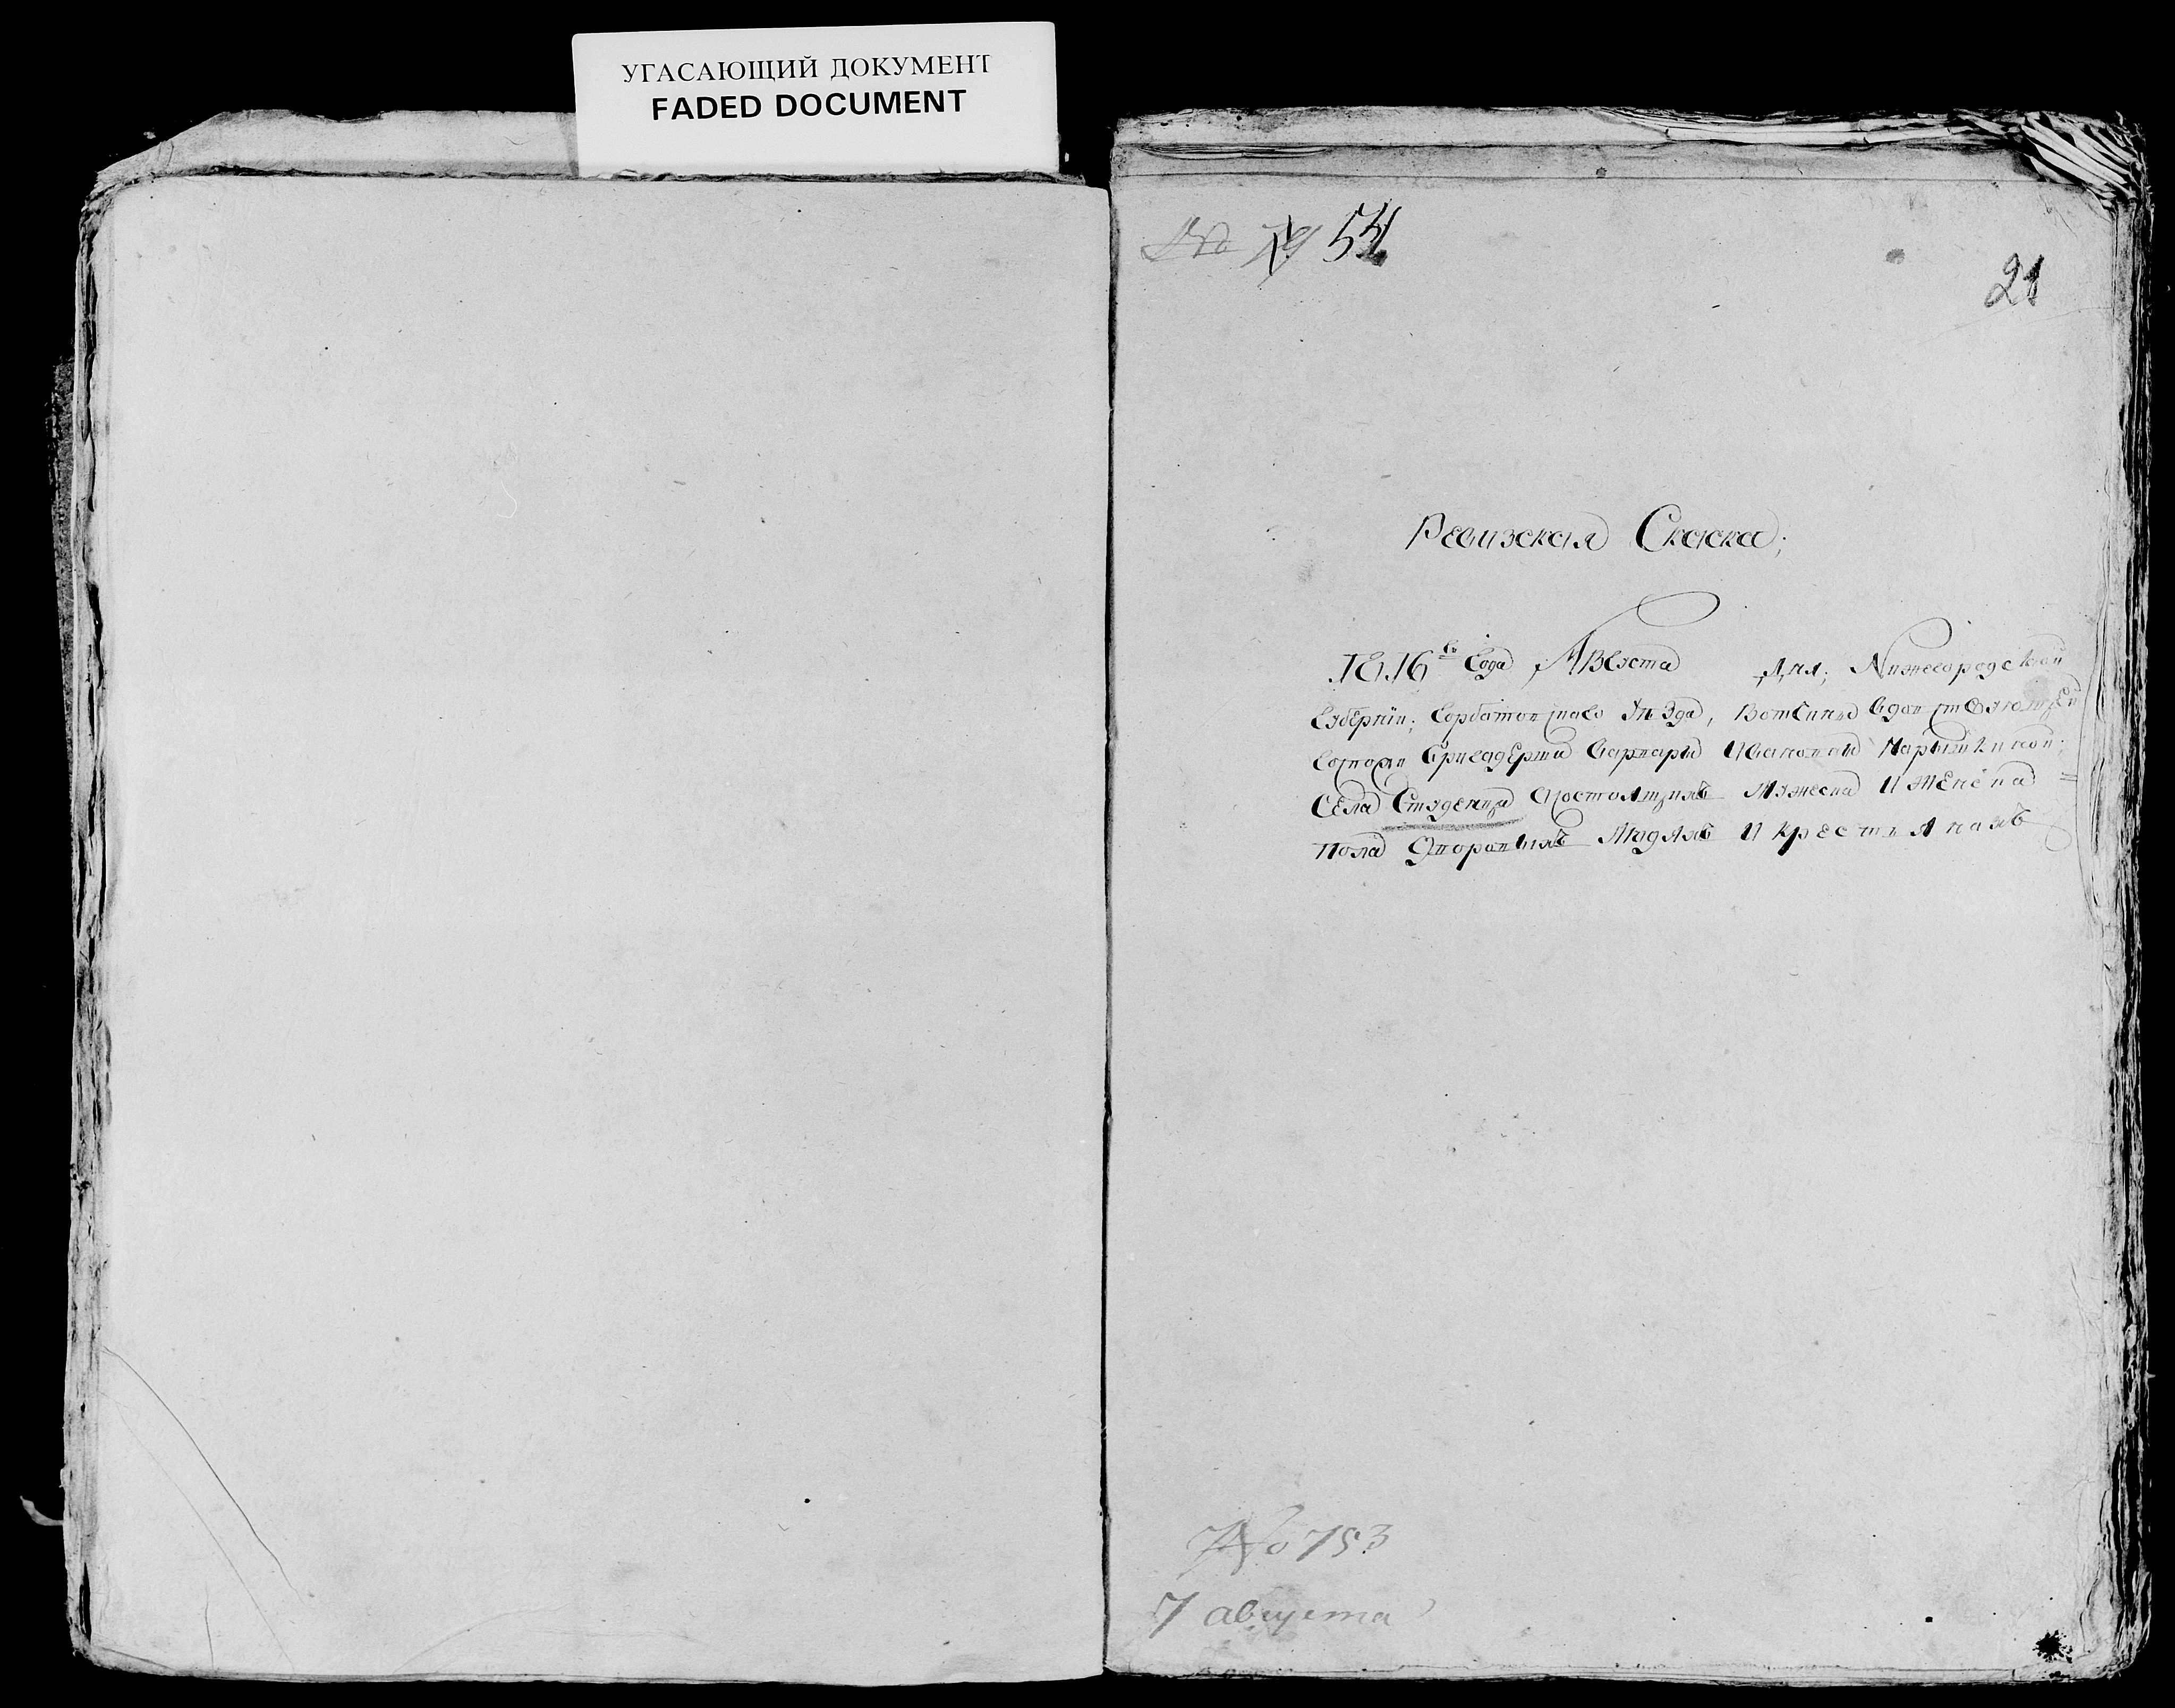 УГАСАЮЩИЙ ДОКУМЕНТ
FADED DOCUMENT
№ 54
21
Ревизская Скаска;
1816го Года Августа дня; Нижегородской
Губернии; Горбатовскаго уѣзда, Вотчины вдовствующей
Госпожи Бригадерши Варвары Ивановны Нарышкиной;
Села Студенца Состоящимъ Мужеска И Женска =
пола Дворовымъ Людямъ И крестьянамъ
№ 753
7 августа